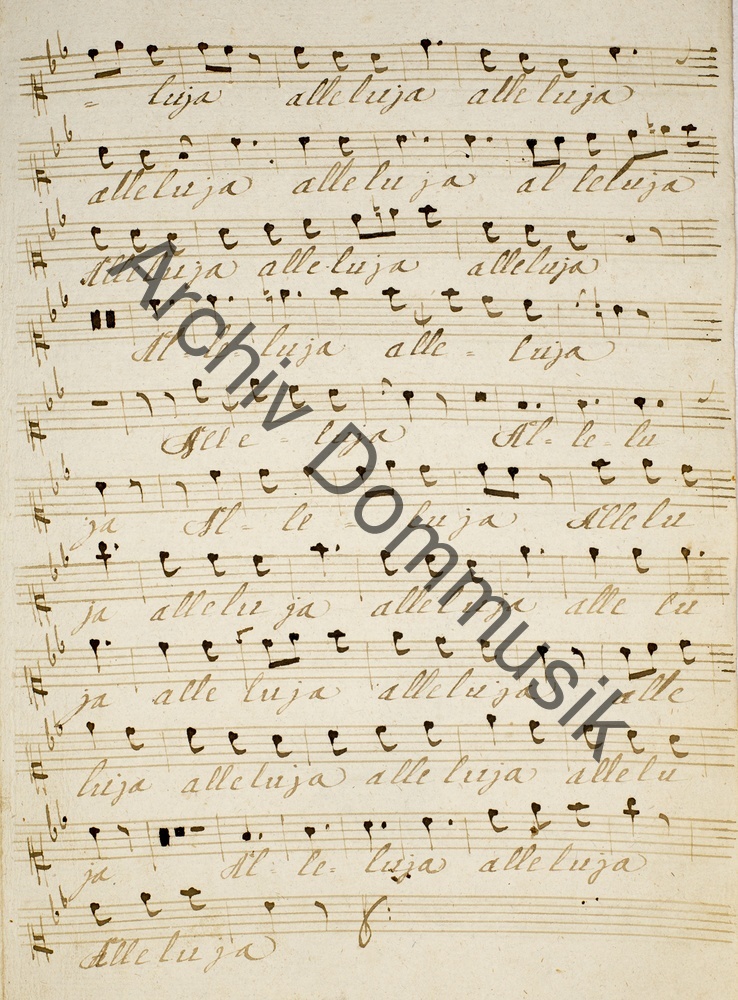 = luja alleluja alleluja
alleluja alleluja alleluja
Alleluja alleluja alleluja
Al - le - luja alle = luja
Alle - luja Al - le - lu
ja Al - le - luja Allelu
ja alleluja alleluja alle lu
ja alle luja alleluja alle
luja alleluja alle luja allelu
ja. Al - le - luja alleluja
Alleluja
Archiv Dommusik